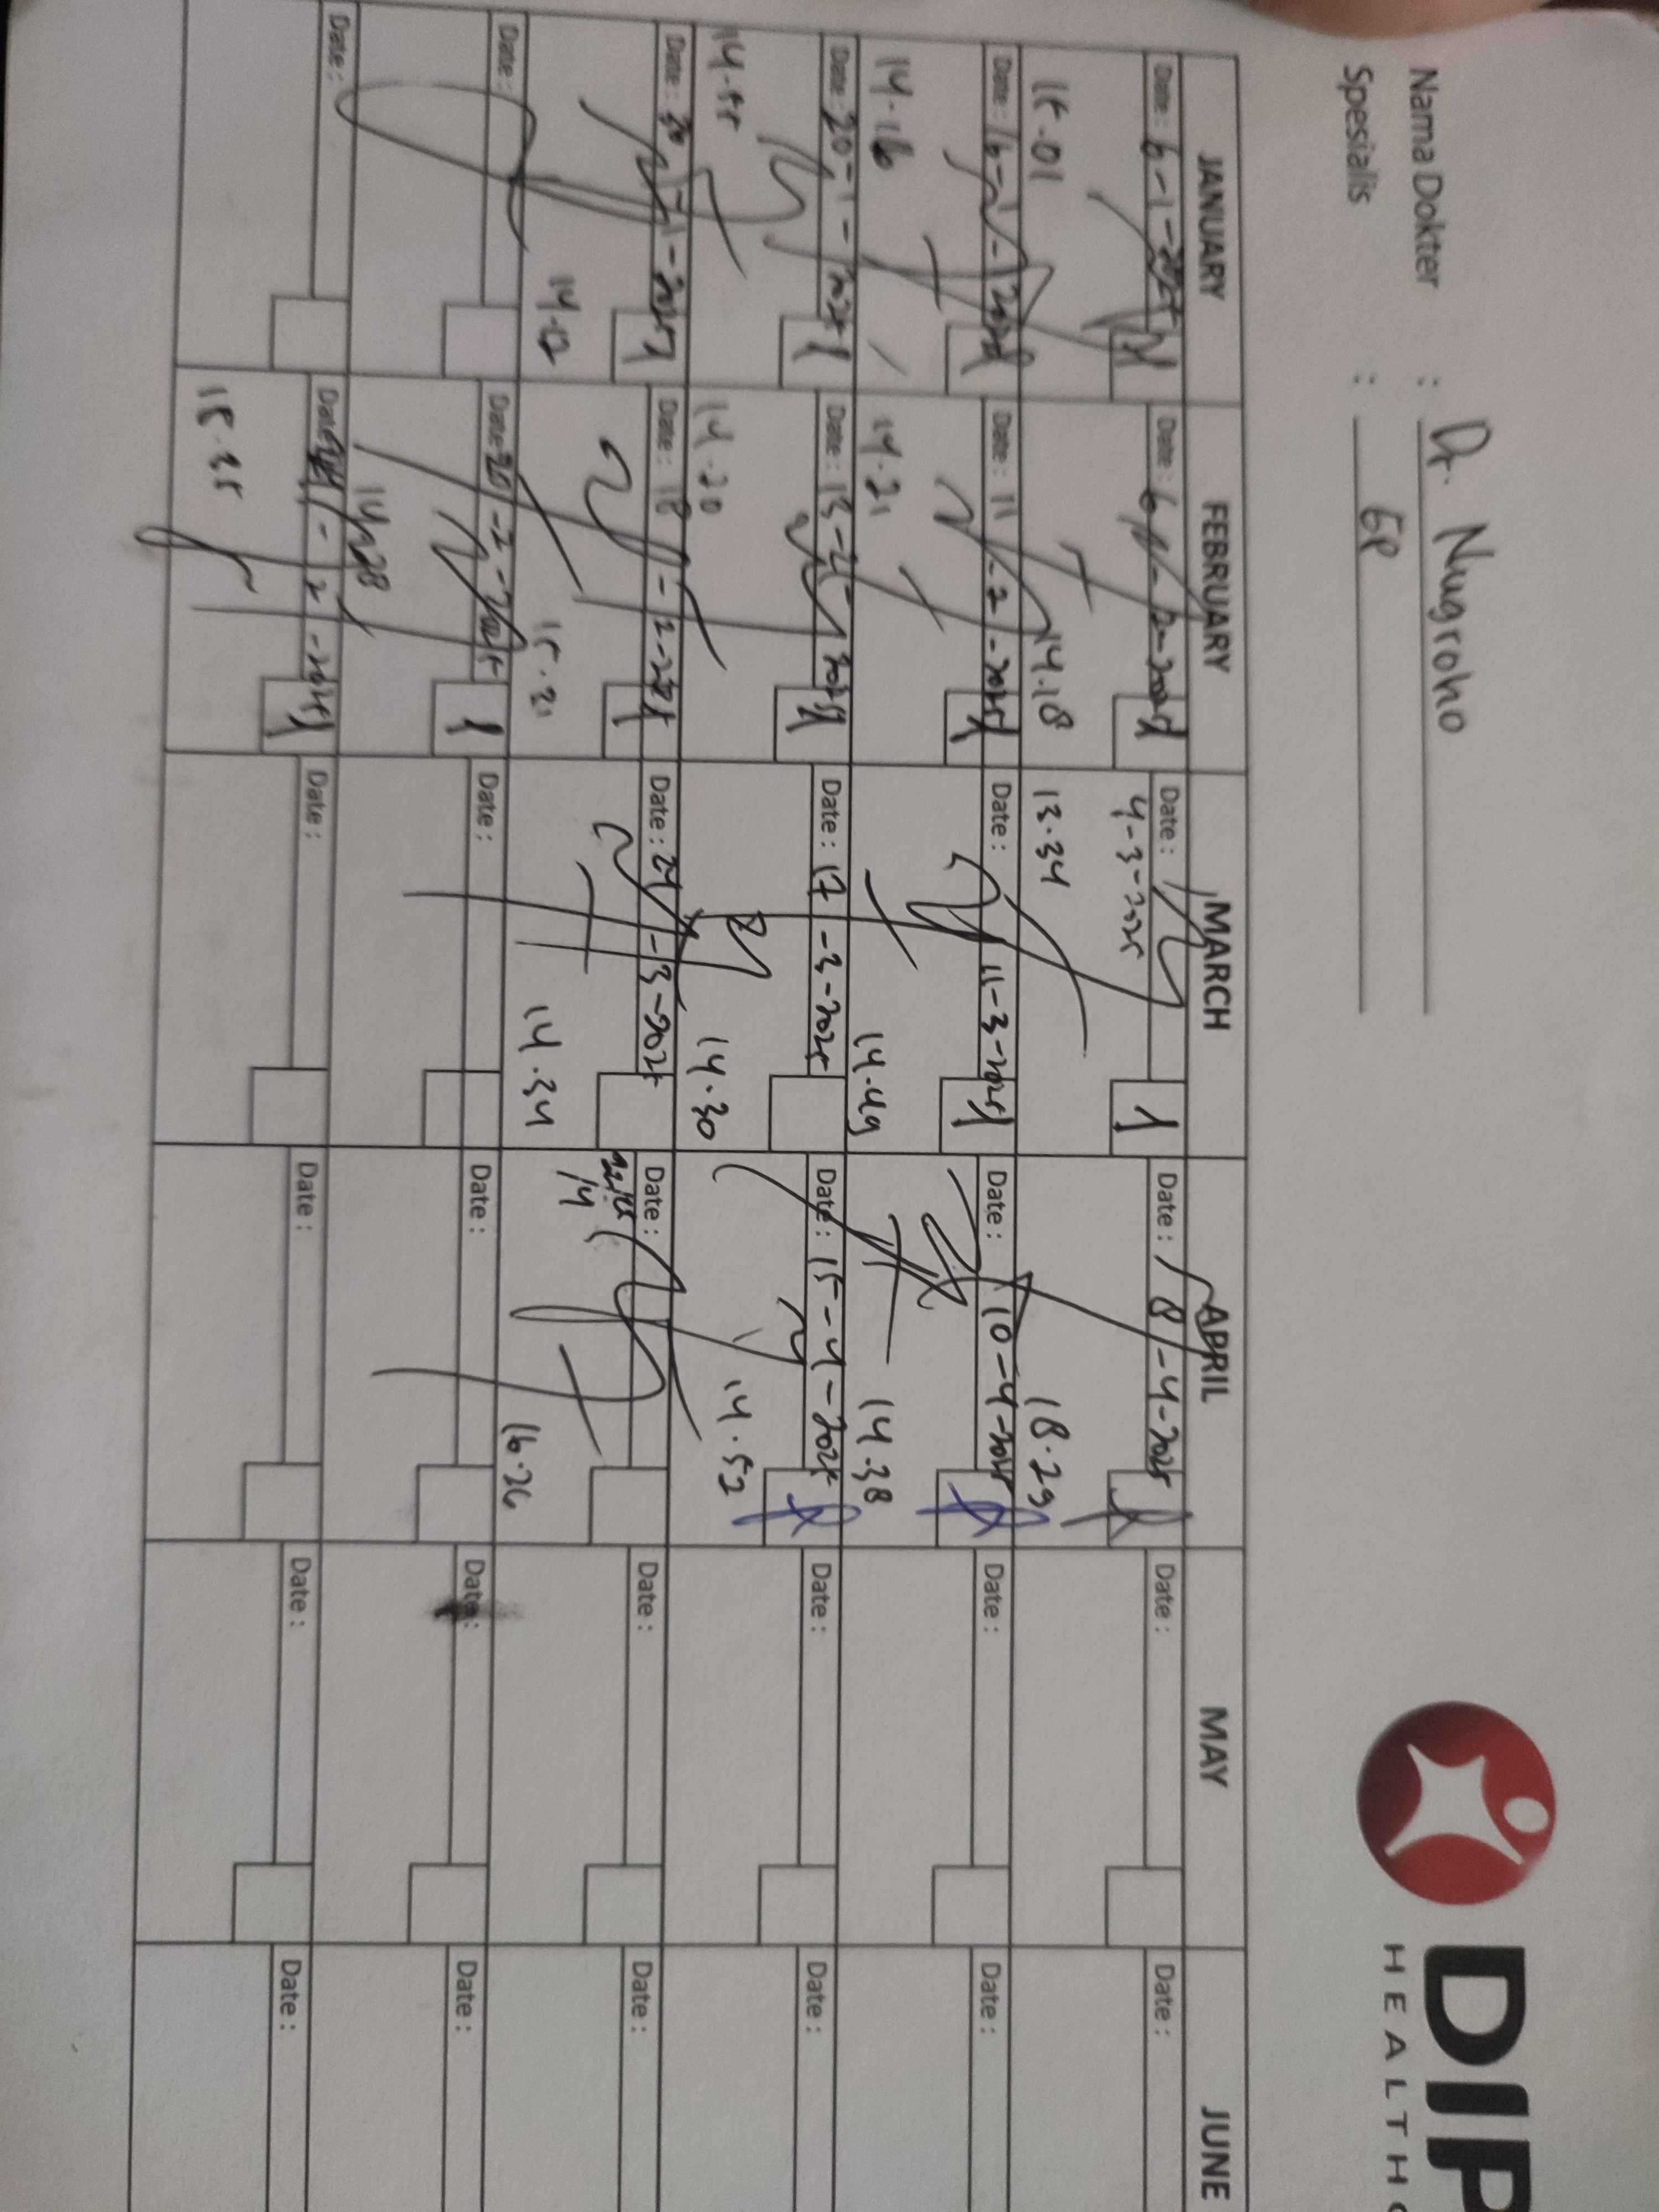 Nama Dokter : Dr. Nugroho
Spesialis : GP
DIP
HEALTHC
JANUARY FEBRUARY MARCH APRIL MAY JUNE
Date : 6-1-2025 Date : 6-2-2025 Date : 4-3-2025 Date : 8-4-2025 Date : Date :
15.01 14.18 13.34 18.29
Date : 16-1-2025 Date : 11-2-2025 Date : 11-3-2025 Date : 10-4-2025 Date : Date :
14.16 14.21 14.49 14.38
Date : 20-1-2025 Date : 13-2-2025 Date : 17-3-2025 Date : 15-4-2025 Date : Date :
14.55 14.20 14.30 14.52
Date : 30-1-2025 Date : 18-2-2025 Date : 24-3-2025 Date : Date : Date :
15.21 14.34 16.26
Date : Date : 20-2-2025 Date : Date : Date : Date :
14.28
Date : Date : Date : Date : Date : Date :